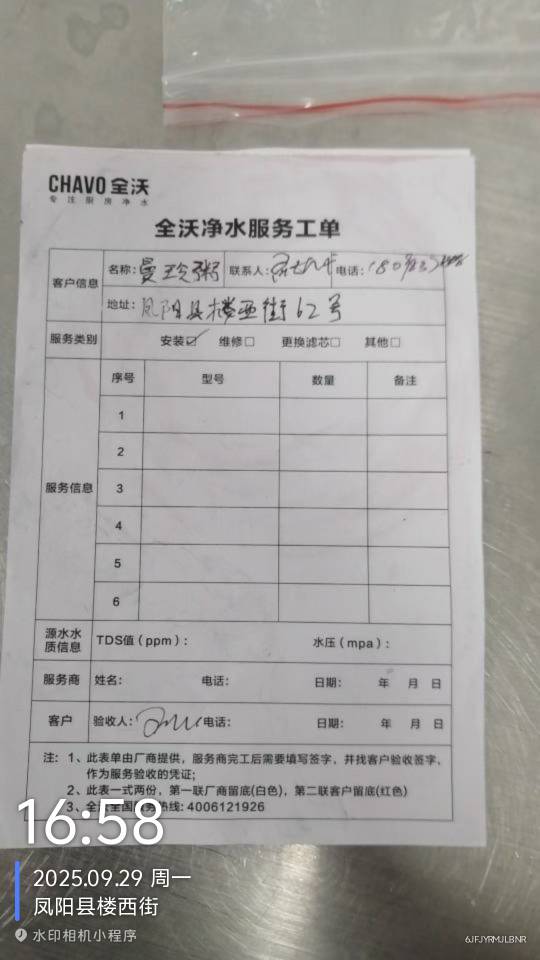 CHAVO 全沃
专注厨房净水
全沃净水服务工单
客户信息
名称: 曼玲粥 联系人: 电话: 180
地址: 凤阳县楼西街62号
服务类别 安装☑ 维修□ 更换滤芯□ 其他□
服务信息
序号 型号 数量 备注
1
2
3
4
5
6
源水水质信息 TDS值（ppm）： 水压（mpa）：
服务商 姓名: 电话: 日期: 年 月 日
客户 验收人: 电话: 日期: 年 月 日
注: 1、此表单由厂商提供，服务商完工后需要填写签字，并找客户验收签字，
作为服务验收的凭证;
2、此表一式两份，第一联厂商留底(白色)，第二联客户留底(红色)
3、全沃全国服务热线: 4006121926
16:58
2025.09.29 周一
凤阳县楼西街
水印相机小程序
6JFJYRMJLBNR